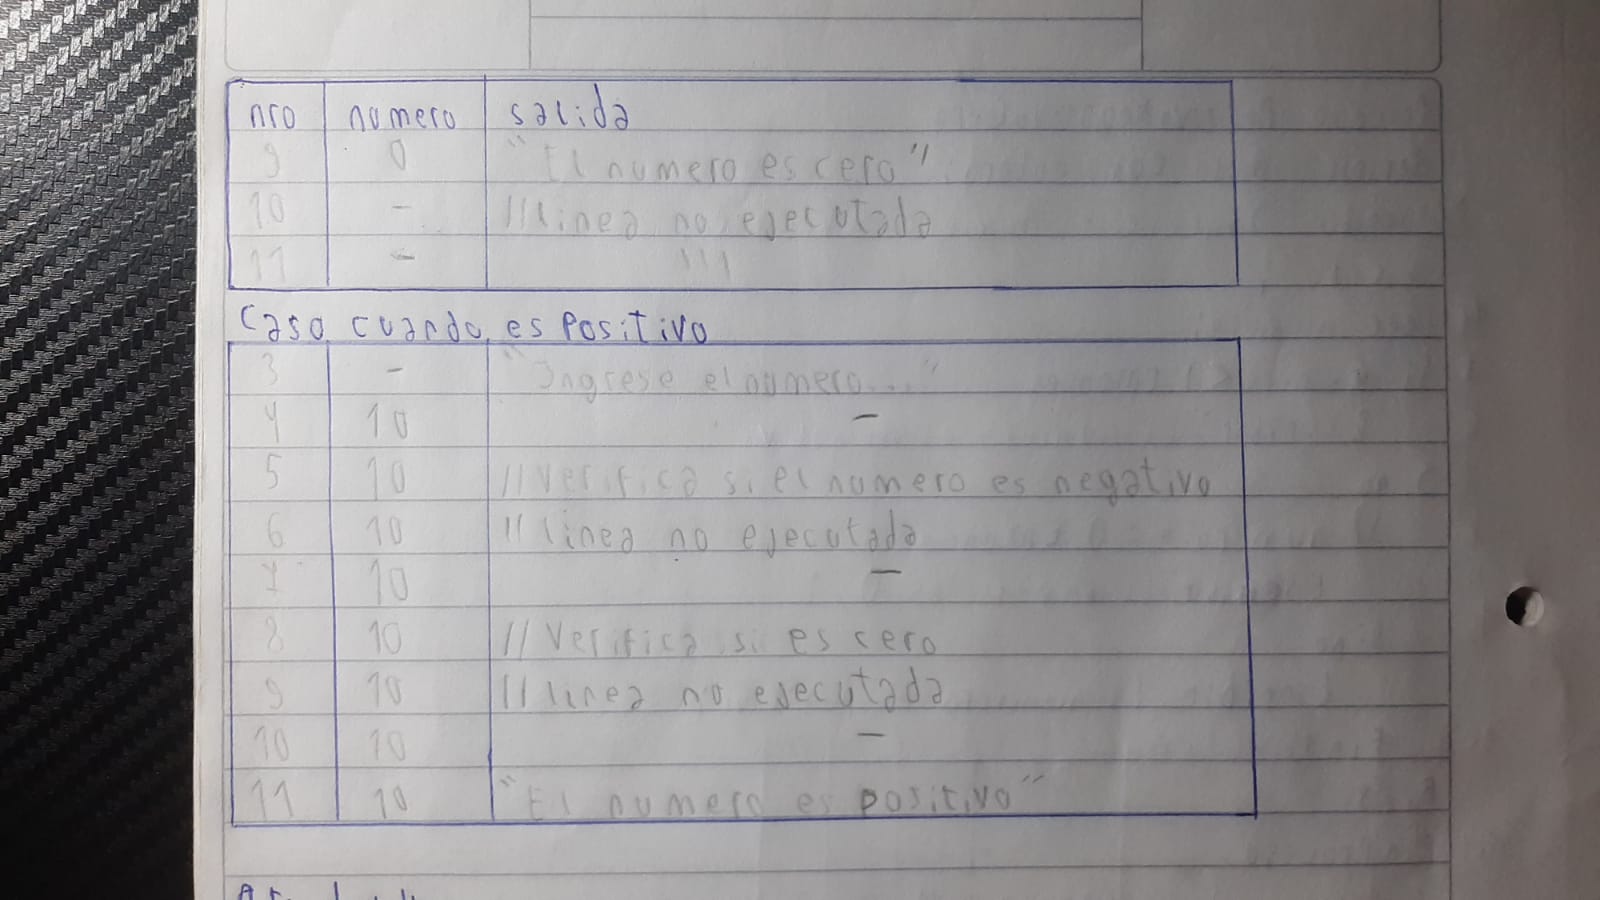 nro numero salida
9 0 "El numero es cero"
10 - //linea no ejecutada
11 - '''
Caso cuando es positivo
3 - "Ingrese el numero..."
4 10 -
5 10 //verifica si el numero es negativo
6 10 //linea no ejecutada
7 10 -
8 10 //Verifica si es cero
9 10 //linea no ejecutada
10 10 -
11 10 "El numero es positivo"